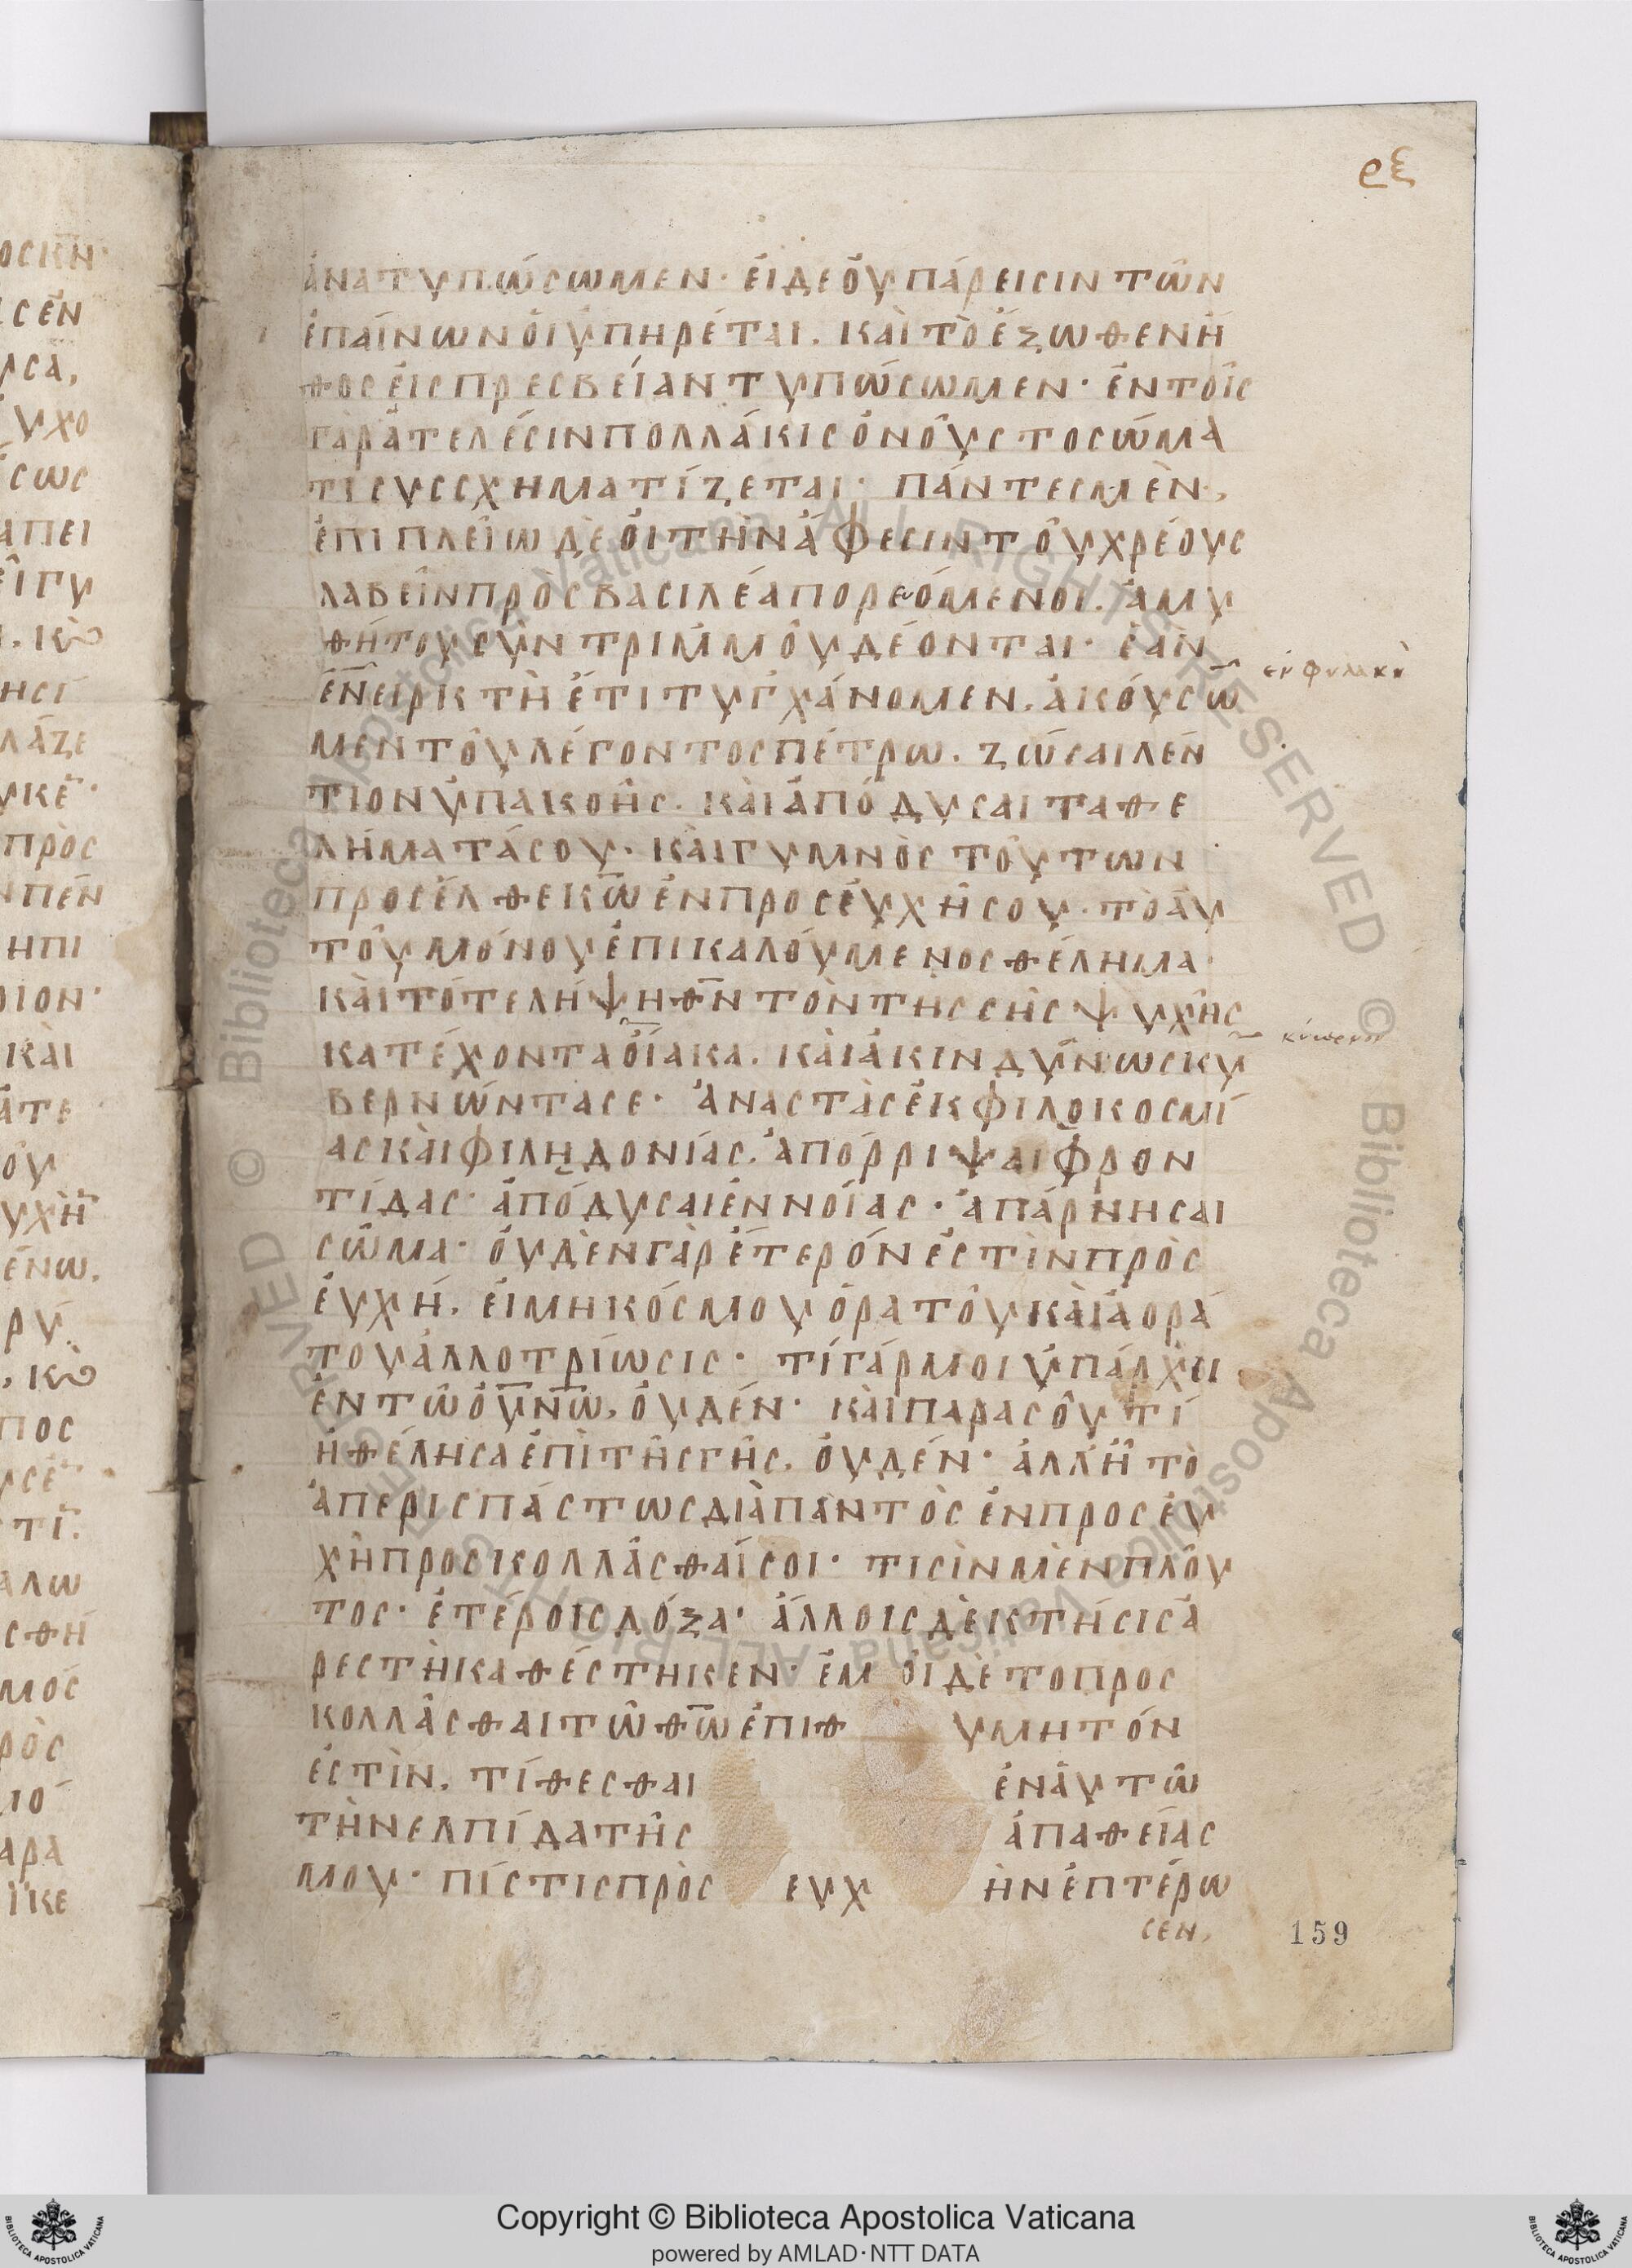 ρξ
ἀνατυπώσωμεν· εἰ δε οὐ πάρεισιν τῶν
ἐπαίνων οἱ ὑπηρέται, καὶ τὸ ἔξωθεν ἦ
θος εἰς πρεσβείαν τυπώσωμεν· ἐν τοῖς
γὰρ ἀτελέσιν πολλάκις ὁ νοῦς το σώμα
τι συσσχηματίζεται· πάντες μὲν,
ἐπι πλεῖω δὲ οἱ τὴν ἄφεσιν τοῦ χρέους
λαβεῖν πρὸς βασιλέα πορεόμενοι. ἀμυ
θήτου συντριμμοῦ δέονται· ἐὰν
ἐν εἱρκτὴ ἔτι τυγχάνομεν, ἀκούσω
ἐν φυλακὴ
μεν τοῦ λέγοντος πέτρω. ζῶσαι λέν
τιον ὑπακοῆς. καὶ ἀπόδυσαι τα θε
λήματά σου· καὶ γυμνὸς τούτων
προσέλθε κω ἐν προσευχῆ σου· τὸ αὐ
τοῦ μόνου ἐπικαλούμενος θέλημα·
καὶ τότε λήψη θν τὸν τῆς σῆς ψυχῆς
κατέχοντα οἴακα. καὶ ἀκινδύνως κυ
βερνῶντα σε· ἀναστὰς ἐκ φιλοκοσμί
ας καὶ φιληδονίας. ἀπόρριψαι φρον
τίδας· ἀπόδυσαι ἐννοίας· ἀπάρνησαι
σῶμα· οὐδὲν γὰρ ἕτερόν ἐστὶν προσ
ευχή, εἰ μη κόσμου ὁρατοῦ καὶ ἀορά
του ἀλλοτρίωσις· τί γάρ μοι ὑπάρχει
ἐν τῶ οὐνω, οὐδέν· καὶ παρα σοῦ τί
ἠθέλησα ἐπὶ τῆς γῆς, οὐδέν· ἀλλ ἢ τὸ
ἀπερισπάστως διὰ παντὸς ἐν προσευ
χὴ προσκολλᾶσθαί σοι· τισὶν μὲν πλοῦ
τος· ἑτέροις δόξα· ἄλλοις δὲ κτήσις ἀ
ρεστὴ καθέστηκεν· ἐμοὶ δὲ το προσ
κολλᾶσθαι τῶ θω ἐπιθ υμητόν
ἐστὶν. τίθεσθαι ἐν αὐτῶ
τὴν ελπίδα τῆς ἀπαθείας
μου· πίστις προσ ευχ ὴν ἐπτέρω
σεν.
159
Copyright © Biblioteca Apostolica Vaticana
powered by AMLAD·NTT DATA